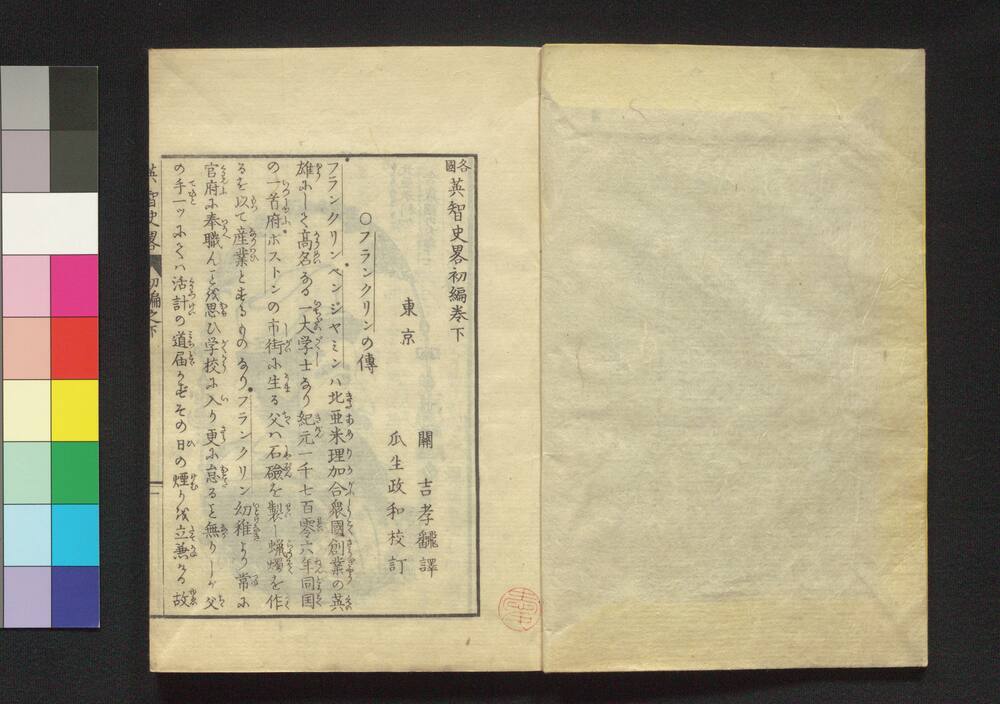 各國英智史畧初編巻下
東京
關 吉孝飜譯
瓜生政和校訂
〇フランクリンの傳
フランクリンベンジャミンハ北亜米理加合衆國創業の英
雄にして高名なる一大学士なり紀元一千七百零六年同国
の一首府ボストンの市街に生る父ハ石礆を製し蝋燭を作
るを以て産業とするものなりフランクリン幼稚より常に
官府に奉職んことを思ひ学校に入り更に怠ること無りしが父
の手一ッにてハ活計の道届かずその日の煙りを立兼る故
英智史畧 初編之下